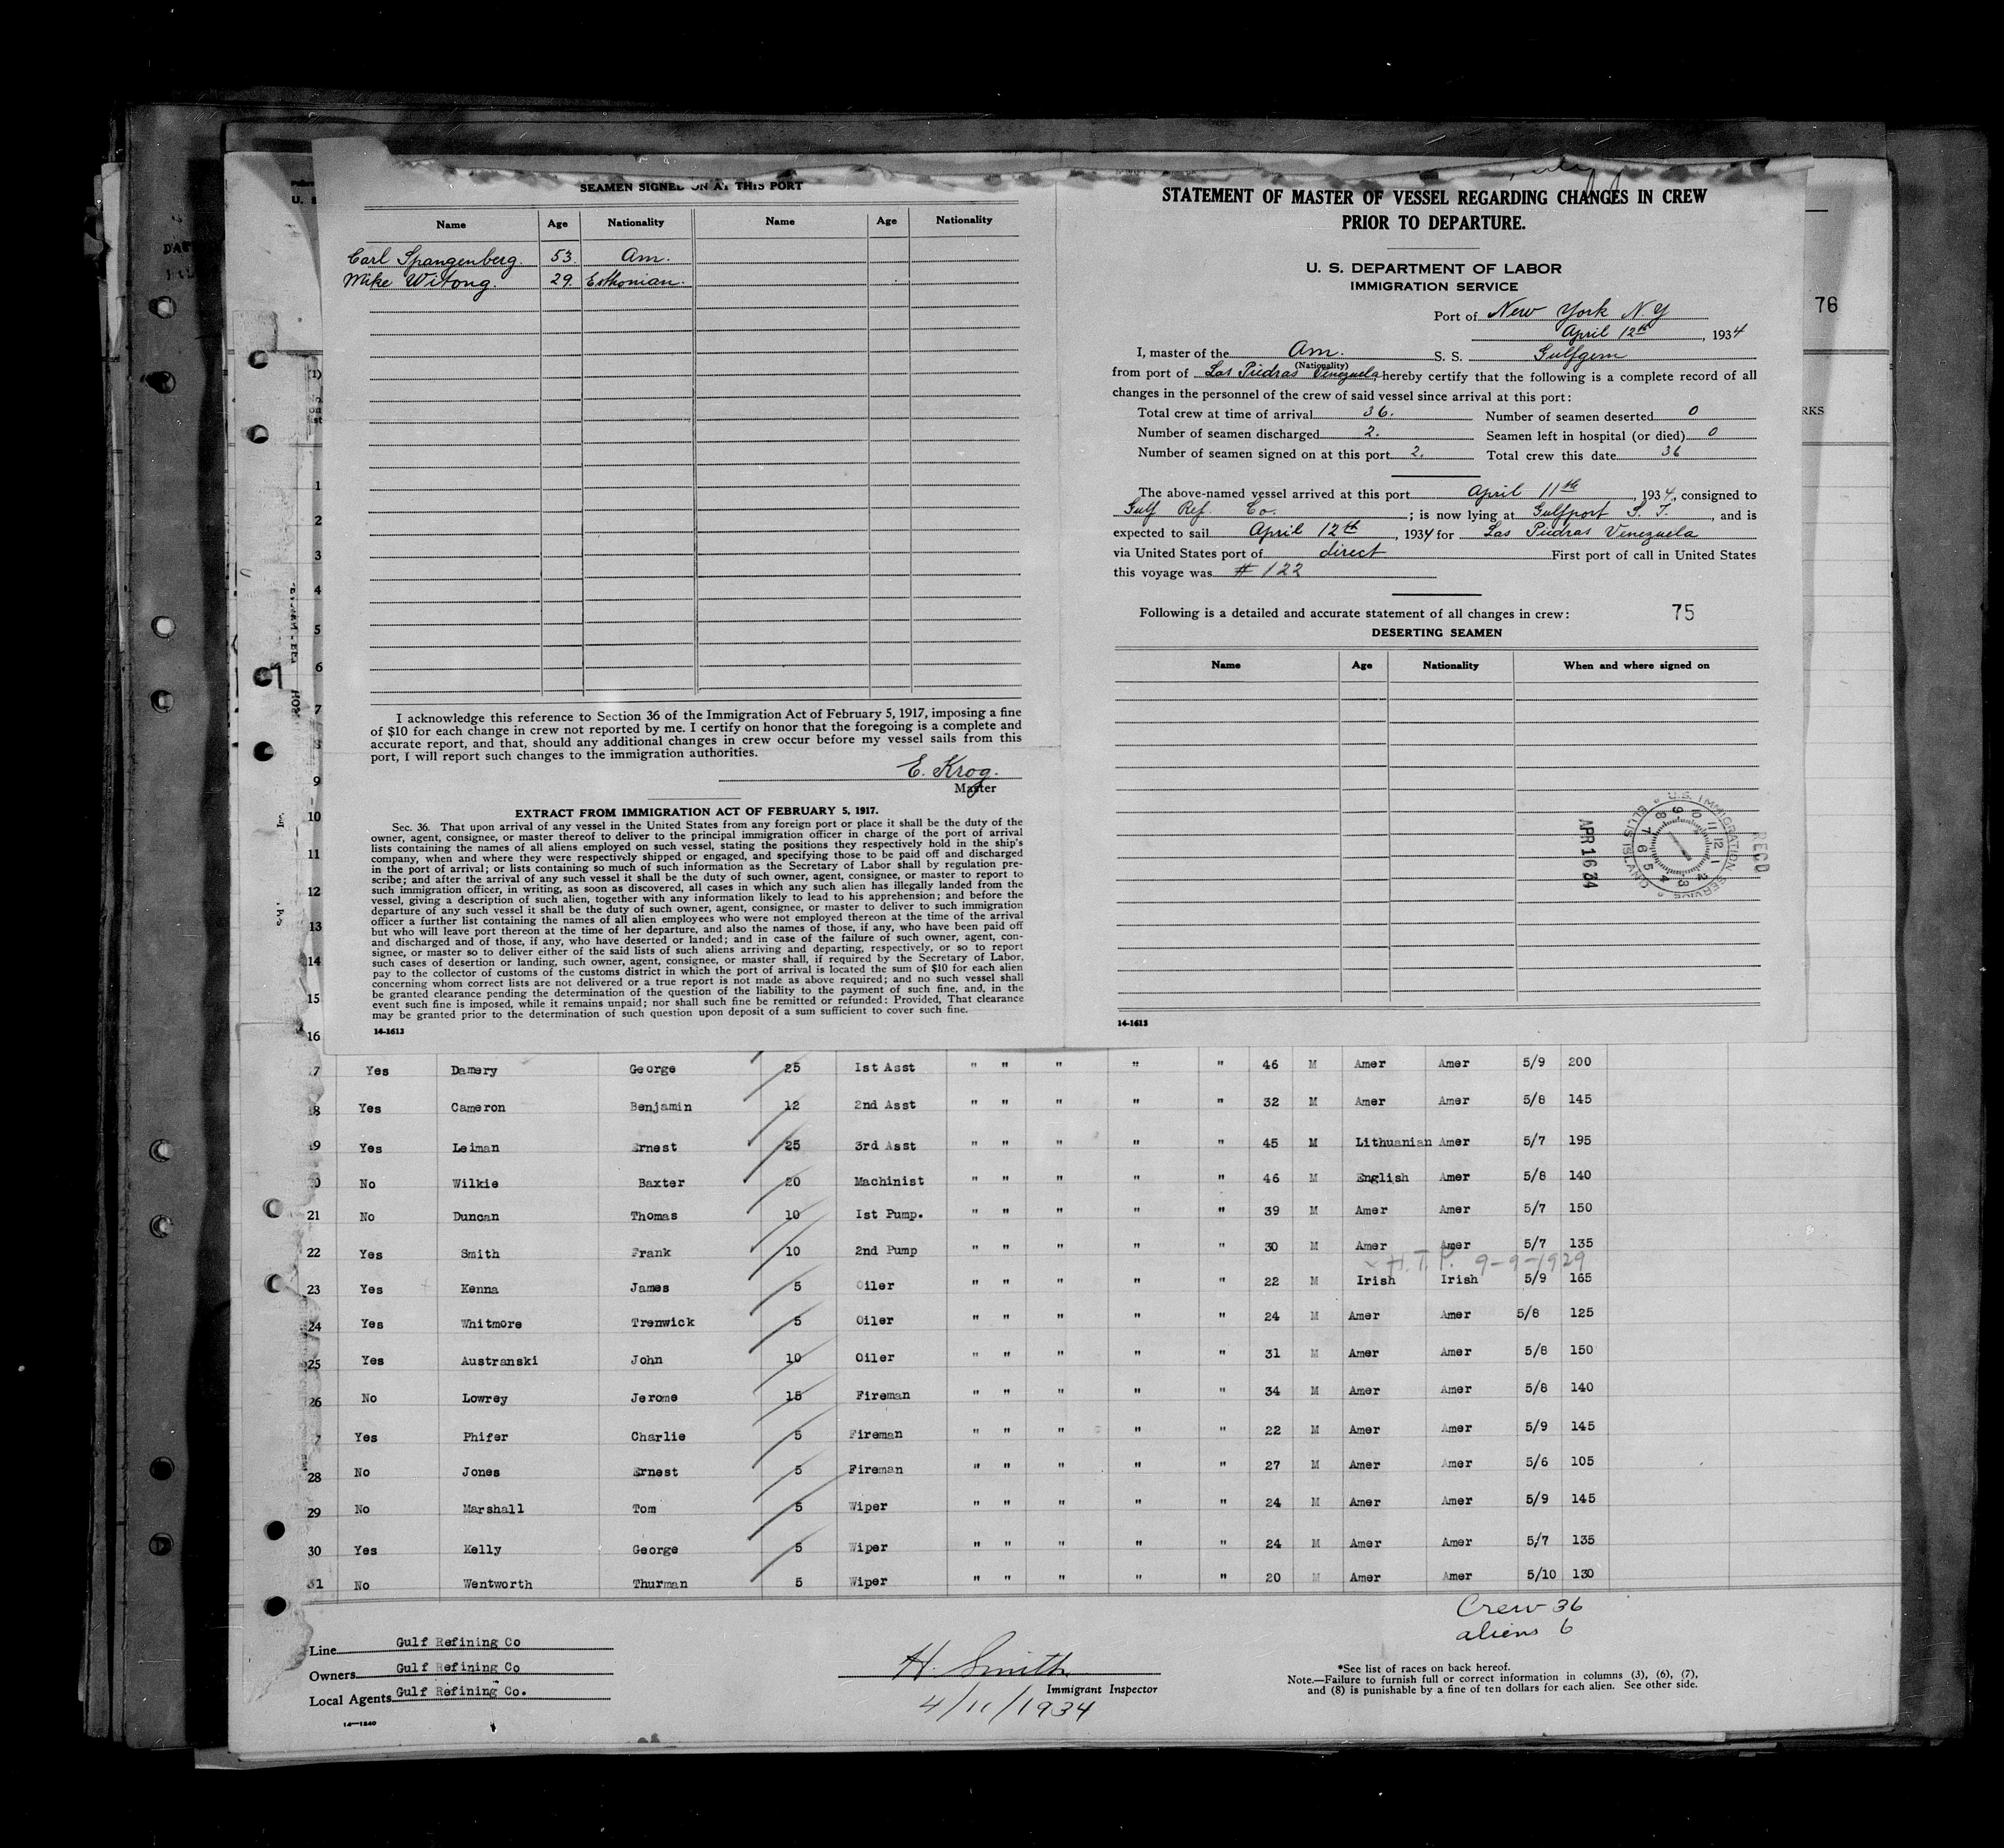 SEAMEN SIGNED ON AT THIS PORT
Name Age Nationality Name Age Nationality
Carl Spangenberg. 53. Am.
Mike Witong. 29. Esthonian.
I acknowledge this reference to Section 36 of the Immigration Act of February 5, 1917, imposing a fine
of $10 for each change in crew not reported by me. I certify on honor that the foregoing is a complete and
accurate report, and that, should any additional changes in crew occur before my vessel sails from this
port, I will report such changes to the immigration authorities.
E. Krog.
Master
EXTRACT FROM IMMIGRATION ACT OF FEBRUARY 5, 1917.
Sec. 36. That upon arrival of any vessel in the United States from any foreign port or place it shall be the duty of the
owner, agent, consignee, or master thereof to deliver to the principal immigration officer in charge of the port of arrival
lists containing the names of all aliens employed on such vessel, stating the positions they respectively hold in the ship's
company, when and where they were respectively shipped or engaged, and specifying those to be paid off and discharged
in the port of arrival; or lists containing so much of such information as the Secretary of Labor shall by regulation pre-
scribe; and after the arrival of any such vessel it shall be the duty of such owner, agent, consignee, or master to report to
such immigration officer, in writing, as soon as discovered, all cases in which any such alien has illegally landed from the
vessel, giving a description of such alien, together with any information likely to lead to his apprehension; and before the
departure of any such vessel it shall be the duty of such owner, agent, consignee, or master to deliver to such immigration
officer a further list containing the names of all alien employees who were not employed thereon at the time of the arrival
but who will leave port thereon at the time of her departure, and also the names of those, if any, who have been paid off
and discharged and of those, if any, who have deserted or landed; and in case of the failure of such owner, agent, con-
signee, or master so to deliver either of the said lists of such aliens arriving and departing, respectively, or so to report
such cases of desertion or landing, such owner, agent, consignee, or master shall, if required by the Secretary of Labor,
pay to the collector of customs of the customs district in which the port of arrival is located the sum of $10 for each alien
concerning whom correct lists are not delivered or a true report is not made as above required; and no such vessel shall
be granted clearance pending the determination of the question of the liability to the payment of such fine, and, in the
event such fine is imposed, while it remains unpaid; nor shall such fine be remitted or refunded: Provided, That clearance
may be granted prior to the determination of such question upon deposit of a sum sufficient to cover such fine.
14-1613
STATEMENT OF MASTER OF VESSEL REGARDING CHANGES IN CREW
PRIOR TO DEPARTURE.
U. S. DEPARTMENT OF LABOR
IMMIGRATION SERVICE
Port of New York N Y
April 12th, 1934
I, master of the Am. S. S. Gulfgem
(Nationality)
from port of Las Piedras Venezuela, hereby certify that the following is a complete record of all
changes in the personnel of the crew of said vessel since arrival at this port:
Total crew at time of arrival 36. Number of seamen deserted 0
Number of seamen discharged 2. Seamen left in hospital (or died) 0
Number of seamen signed on at this port 2. Total crew this date 36
The above-named vessel arrived at this port April 11th, 1934, consigned to
Gulf Ref. Co.; is now lying at Gulfport S. I., and is
expected to sail April 12th, 1934 for Las Piedras Venezuela
via United States port of direct First port of call in United States
this voyage was # 122
Following is a detailed and accurate statement of all changes in crew: 75
DESERTING SEAMEN
Name Age Nationality When and where signed on
U.S. IMMIGRATION SERVICE ELLIS ISLAND
RECD
APR 16 34
14-1613
76
RKS
1
2
3
4
5
6
7
8
9
10
11
12
13
14
15
16
17 Yes Damery George 25 1st Asst " " " " " 46 M Amer Amer 5/9 200
18 Yes Cameron Benjamin 12 2nd Asst " " " " " 32 M Amer Amer 5/8 145
19 Yes Leiman Ernest 25 3rd Asst " " " " " 45 M Lithuanian Amer 5/7 195
20 No Wilkie Baxter 20 Machinist " " " " " 46 M English Amer 5/8 140
21 No Duncan Thomas 10 1st Pump. " " " " " 39 M Amer Amer 5/7 150
22 Yes Smith Frank 10 2nd Pump " " " " " 30 M Amer Amer 5/7 135
x H.T.P. 9-9-1929
23 Yes Kenna James 5 Oiler " " " " " 22 M Irish Irish 5/9 165
24 Yes Whitmore Trenwick 5 Oiler " " " " " 24 M Amer Amer 5/8 125
25 Yes Austranski John 10 Oiler " " " " " 31 M Amer Amer 5/8 150
26 No Lowrey Jerome 15 Fireman " " " " " 34 M Amer Amer 5/8 140
7 Yes Phifer Charlie 5 Fireman " " " " " 22 M Amer Amer 5/9 145
28 No Jones Ernest 5 Fireman " " " " " 27 M Amer Amer 5/6 105
29 No Marshall Tom 5 Wiper " " " " " 24 M Amer Amer 5/9 145
30 Yes Kelly George 5 Wiper " " " " " 24 M Amer Amer 5/7 135
31 No Wentworth Thurman 5 Wiper " " " " " 20 M Amer Amer 5/10 130
Crew 36
aliens 6
Line Gulf Refining Co
Owners Gulf Refining Co
Local Agents Gulf Refining Co.
14-1240
H. Smith
Immigrant Inspector
4/11/1934
*See list of races on back hereof.
Note.—Failure to furnish full or correct information in columns (3), (6), (7),
and (8) is punishable by a fine of ten dollars for each alien. See other side.